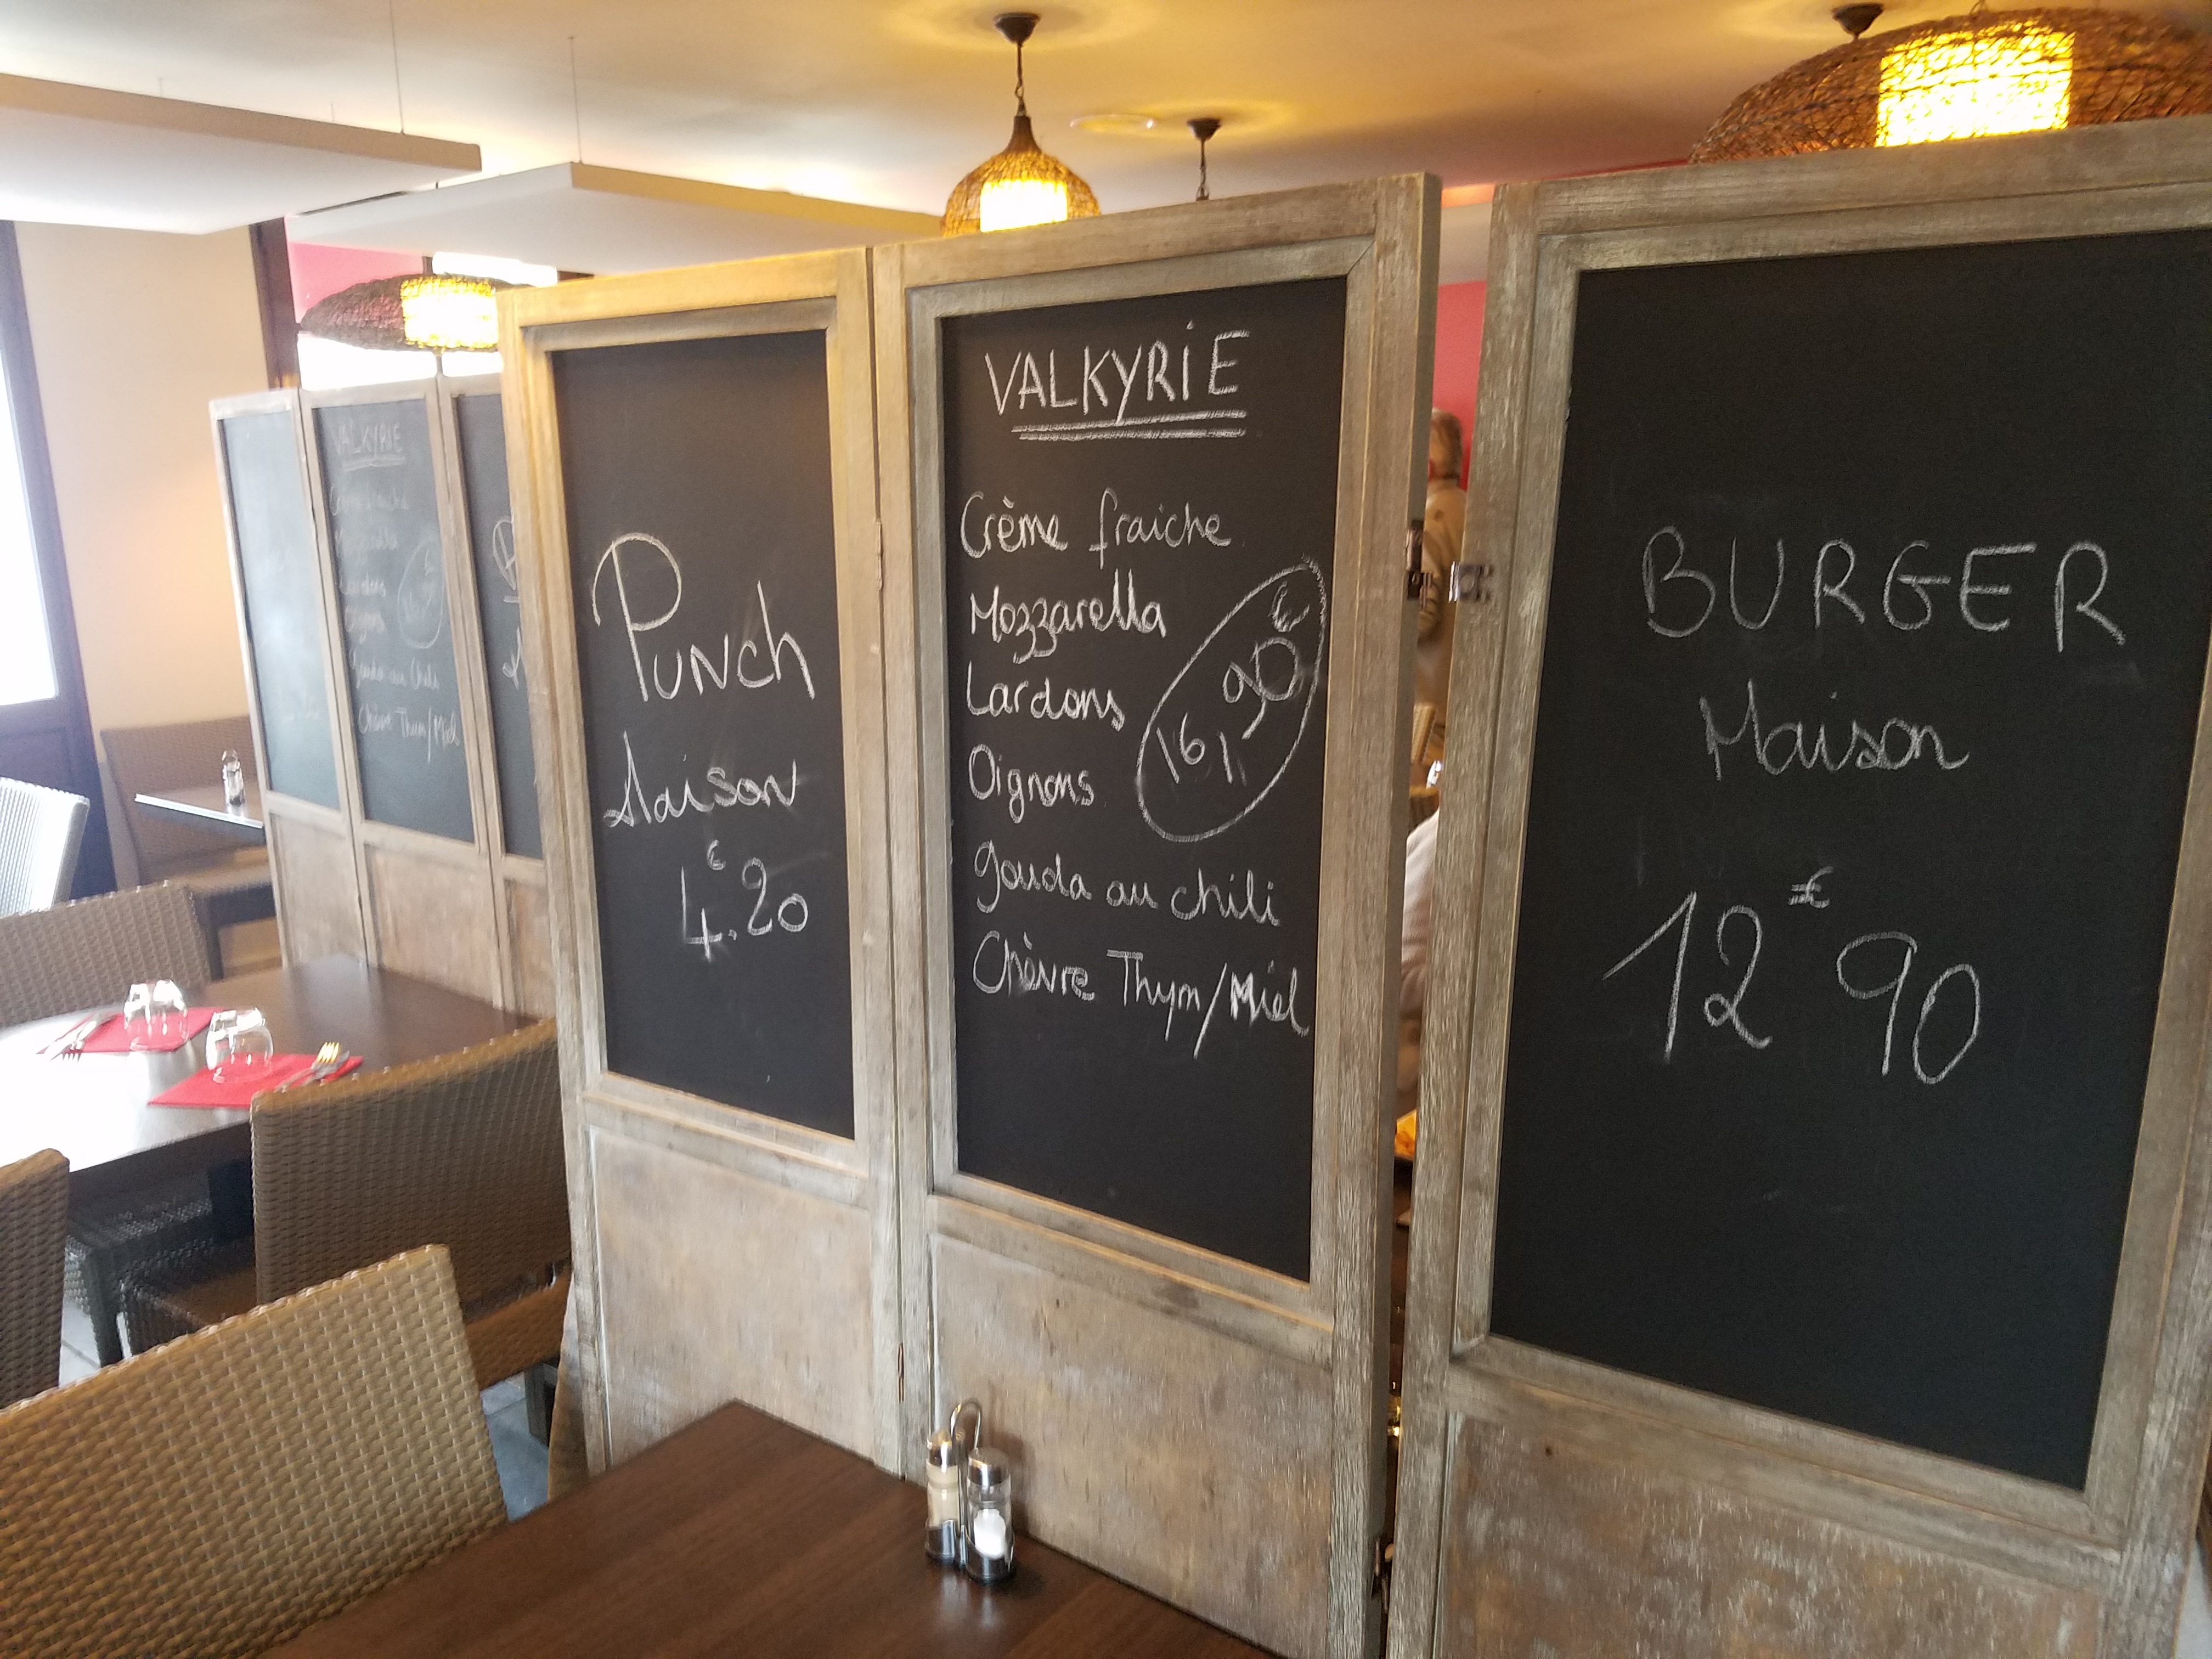 Punch
Maison
4.€20
VALKYRiE
Crème fraiche
Mozzarella
Lardons
Oignons
16,90€
gouda au chili
Chèvre Thym/Miel
BURGER
Maison
12€90
VALKYRIE
Crème fraiche
Mozzarella
Lardons
Oignons
Gouda au Chili
Chèvre Thym/Miel